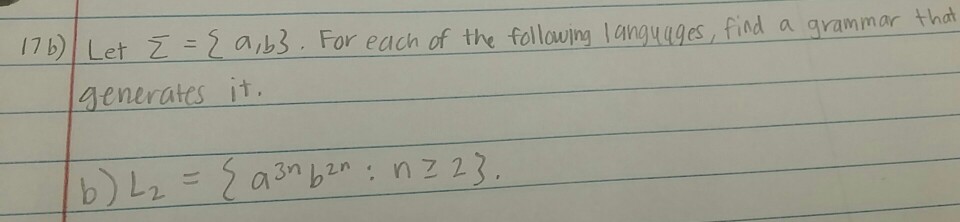 17b) Let Σ = { a,b}. For each of the following languages, find a grammar that
generates it.
b) L₂ = { a³ⁿ b²ⁿ : n ≥ 2}.